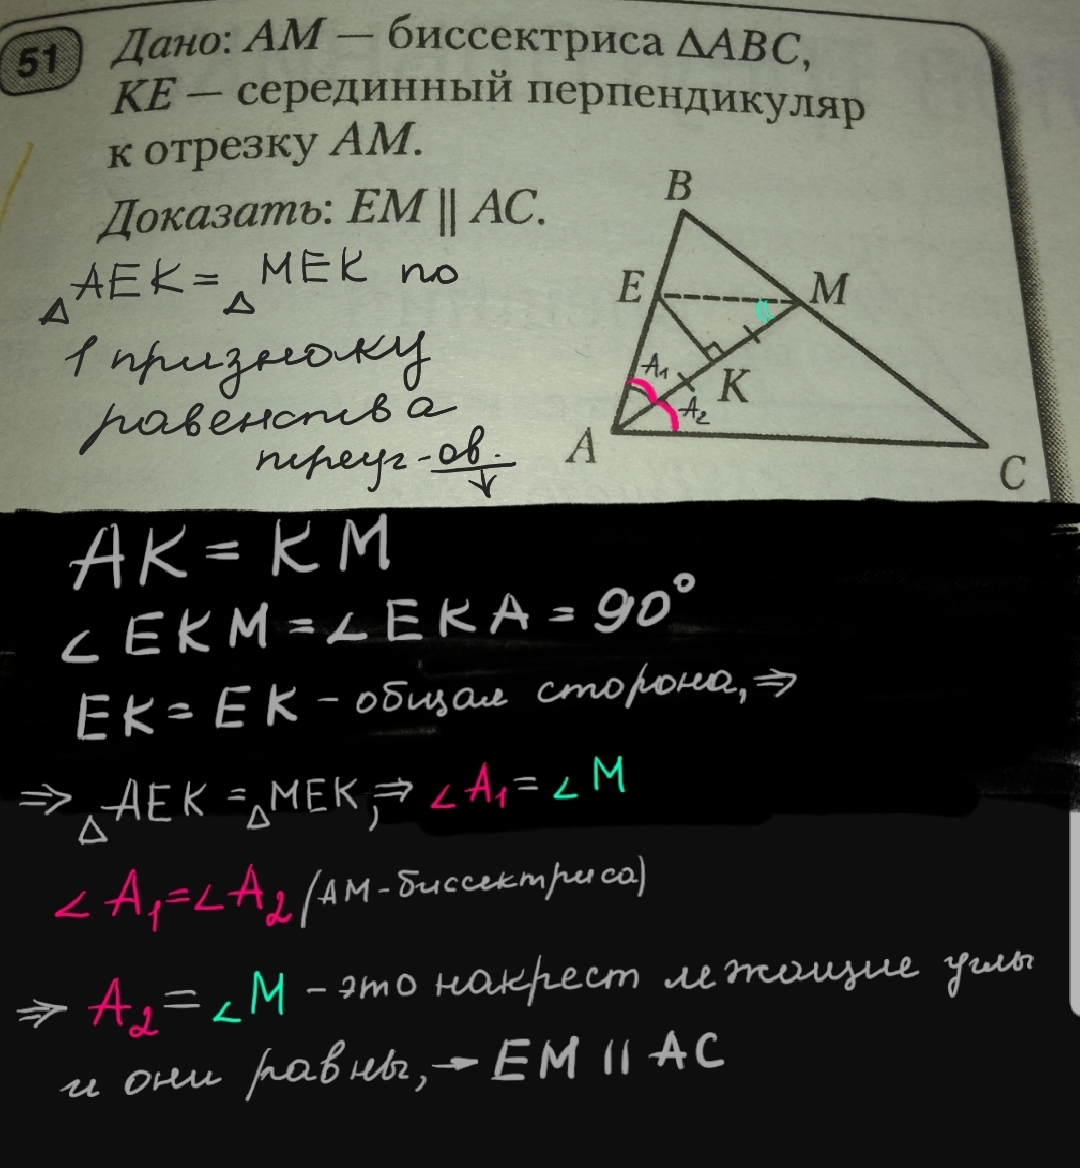 51
Дано: AM — биссектриса ΔABC,
KE — серединный перпендикуляр
к отрезку AM.
Доказать: EM || AC.
△AEK = △MEK по
1 признаку
равенства
треуг-ов.
B
E
M
A₁
K
A₂
A
C
AK = KM
∠EKM = ∠EKA = 90°
EK = EK - общая сторона, ⇒
⇒ △AEK = △MEK, ⇒ ∠A₁ = ∠M
∠A₁ = ∠A₂ (AM - биссектриса)
⇒ A₂ = ∠M - это накрест лежащие углы
и они равны, → EM || AC